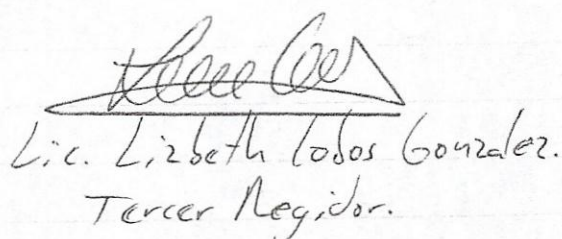 Lic. Lizbeth Cobos Gonzalez.
Tercer Regidor.